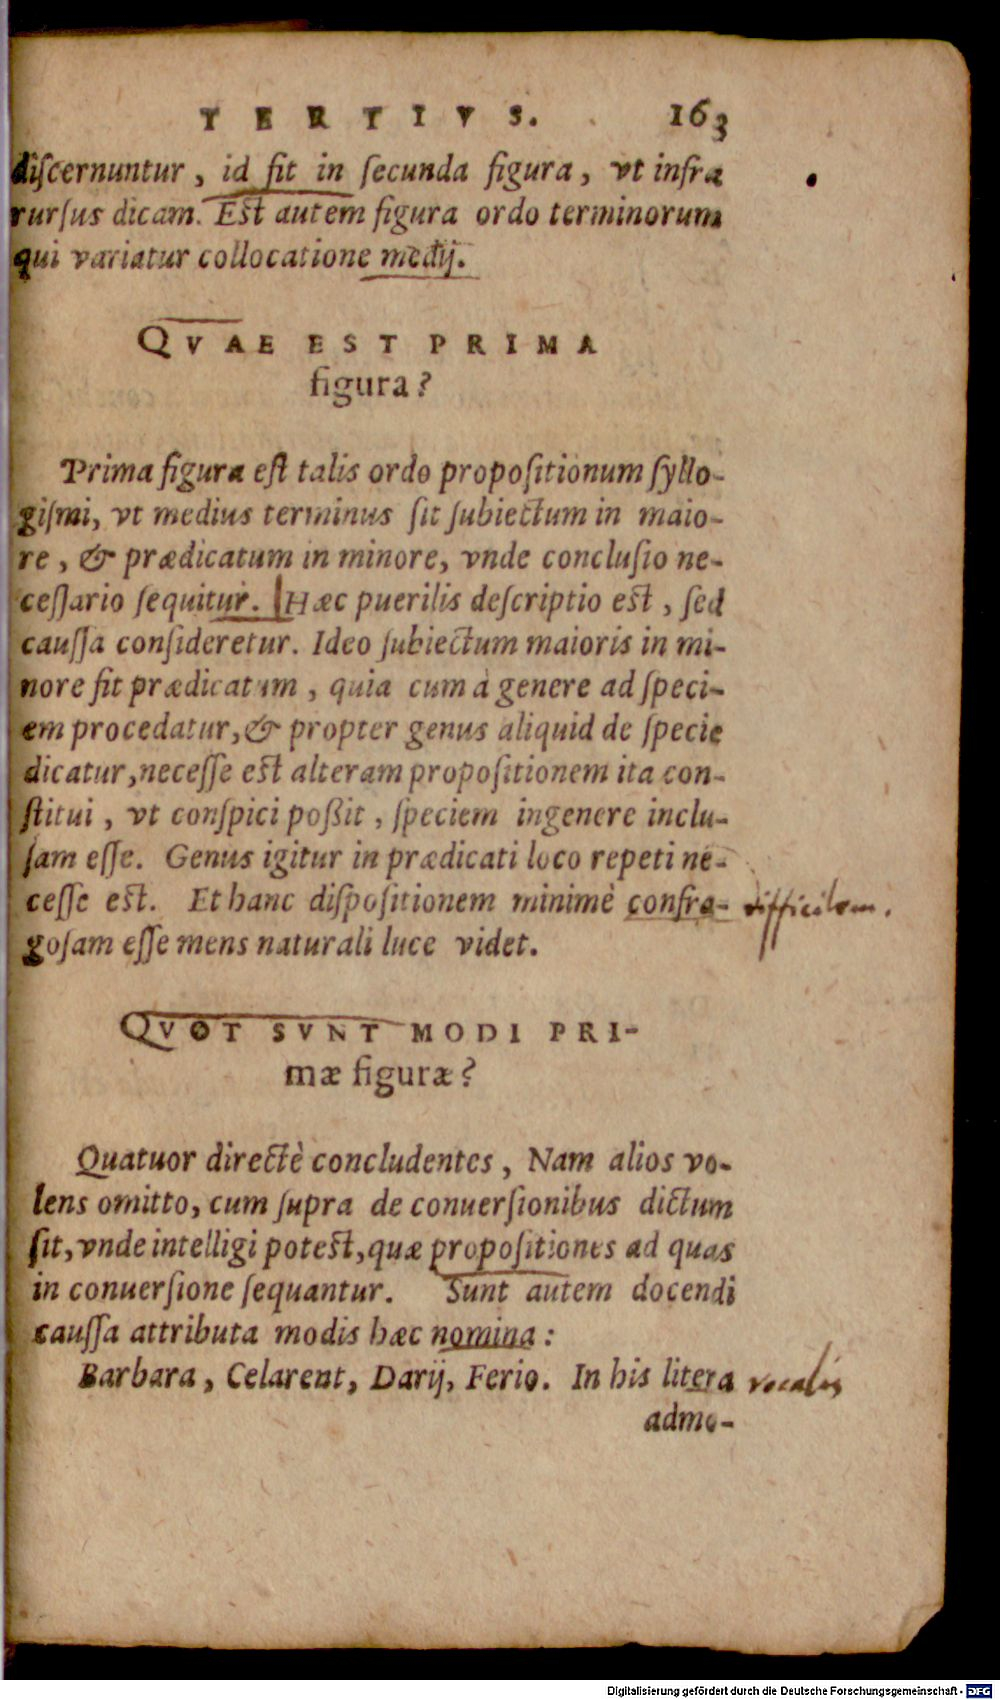 TERTIVS. 163
discernuntur, id fit in secunda figura, vt infra
rursus dicam. Est autem figura ordo terminorum
qui variatur collocatione medij.
QVAE EST PRIMA
figura?
Prima figura est talis ordo propositionum syllo-
gismi, vt medius terminus sit subiectum in maio-
re, & prædicatum in minore, vnde conclusio ne-
cessario sequitur. Hæc puerilis descriptio est, sed
caussa consideretur. Ideo subiectum maioris in mi-
nore fit prædicatum, quia cum à genere ad speci-
em procedatur, & propter genus aliquid de specie
dicatur, necesse est alteram propositionem ita con-
stitui, vt conspici poßit, speciem ingenere inclu-
sam esse. Genus igitur in prædicati loco repeti ne-
cesse est. Et hanc dispositionem minimè confra- difficilem.
gosam esse mens naturali luce videt.
QVOT SVNT MODI PRI-
mæ figuræ?
Quatuor directè concludentes, Nam alios vo-
lens omitto, cum supra de conuersionibus dictum
sit, vnde intelligi potest, quæ propositiones ad quas
in conuersione sequantur. Sunt autem docendi
caussa attributa modis hæc nomina:
Barbara, Celarent, Darij, Ferio. In his litera vocalis
admo-
Digitalisierung gefördert durch die Deutsche Forschungsgemeinschaft - DFG